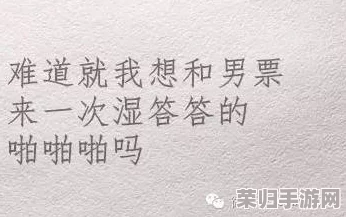 难道就我想和男票
来一次湿答答的
啪啪啪吗
荣归手游网